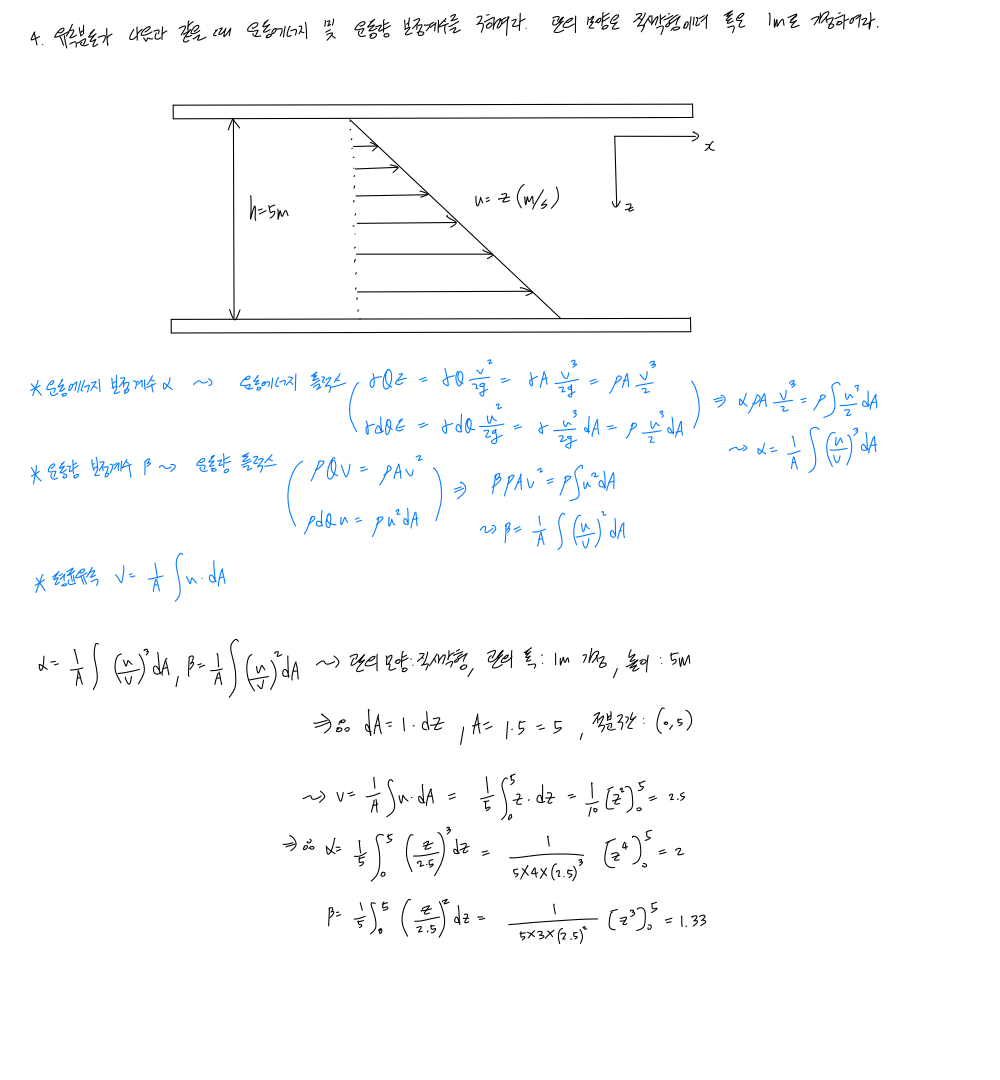 4. 유속분포가 다음과 같을 때 운동에너지 및 운동량 보정계수를 구하여라. 관의 모양은 직사각형이며 폭은 1m로 가정하여라.
x
z
h=5m
u= z (m/s)
* 운동에너지 보정계수 α ~ 운동에너지 플럭스 ( γQE = γQ v²/2g = γA v³/2g = ρA v³/2
γdQE = γdQ u²/2g = γ u³/2g dA = ρ u³/2 dA ) ⇒ αρA v³/2 = ρ∫u³/2 dA
~ α= 1/A ∫(u/v)³dA
* 운동량 보정계수 β ~ 운동량 플럭스 ( ρQv = ρAv²
ρdQu = ρu²dA ) ⇒ βρAv² = ρ∫u²dA
~ β= 1/A ∫(u/v)²dA
* 평균유속 V= 1/A ∫u·dA
α= 1/A ∫(u/v)³dA, β= 1/A ∫(u/v)²dA ~ 관의 모양: 직사각형, 관의 폭: 1m 가정, 높이: 5m
⇒∴ dA= 1·dz, A= 1·5 = 5, 적분구간: (0,5)
~ v= 1/A ∫u·dA = 1/5 ∫₀⁵ z·dz = 1/10 [z²]₀⁵ = 2.5
⇒∴ α= 1/5 ∫₀⁵ (z/2.5)³dz = 1/(5×4×(2.5)³) [z⁴]₀⁵ = 2
β= 1/5 ∫₀⁵ (z/2.5)²dz = 1/(5×3×(2.5)²) [z³]₀⁵ = 1.33